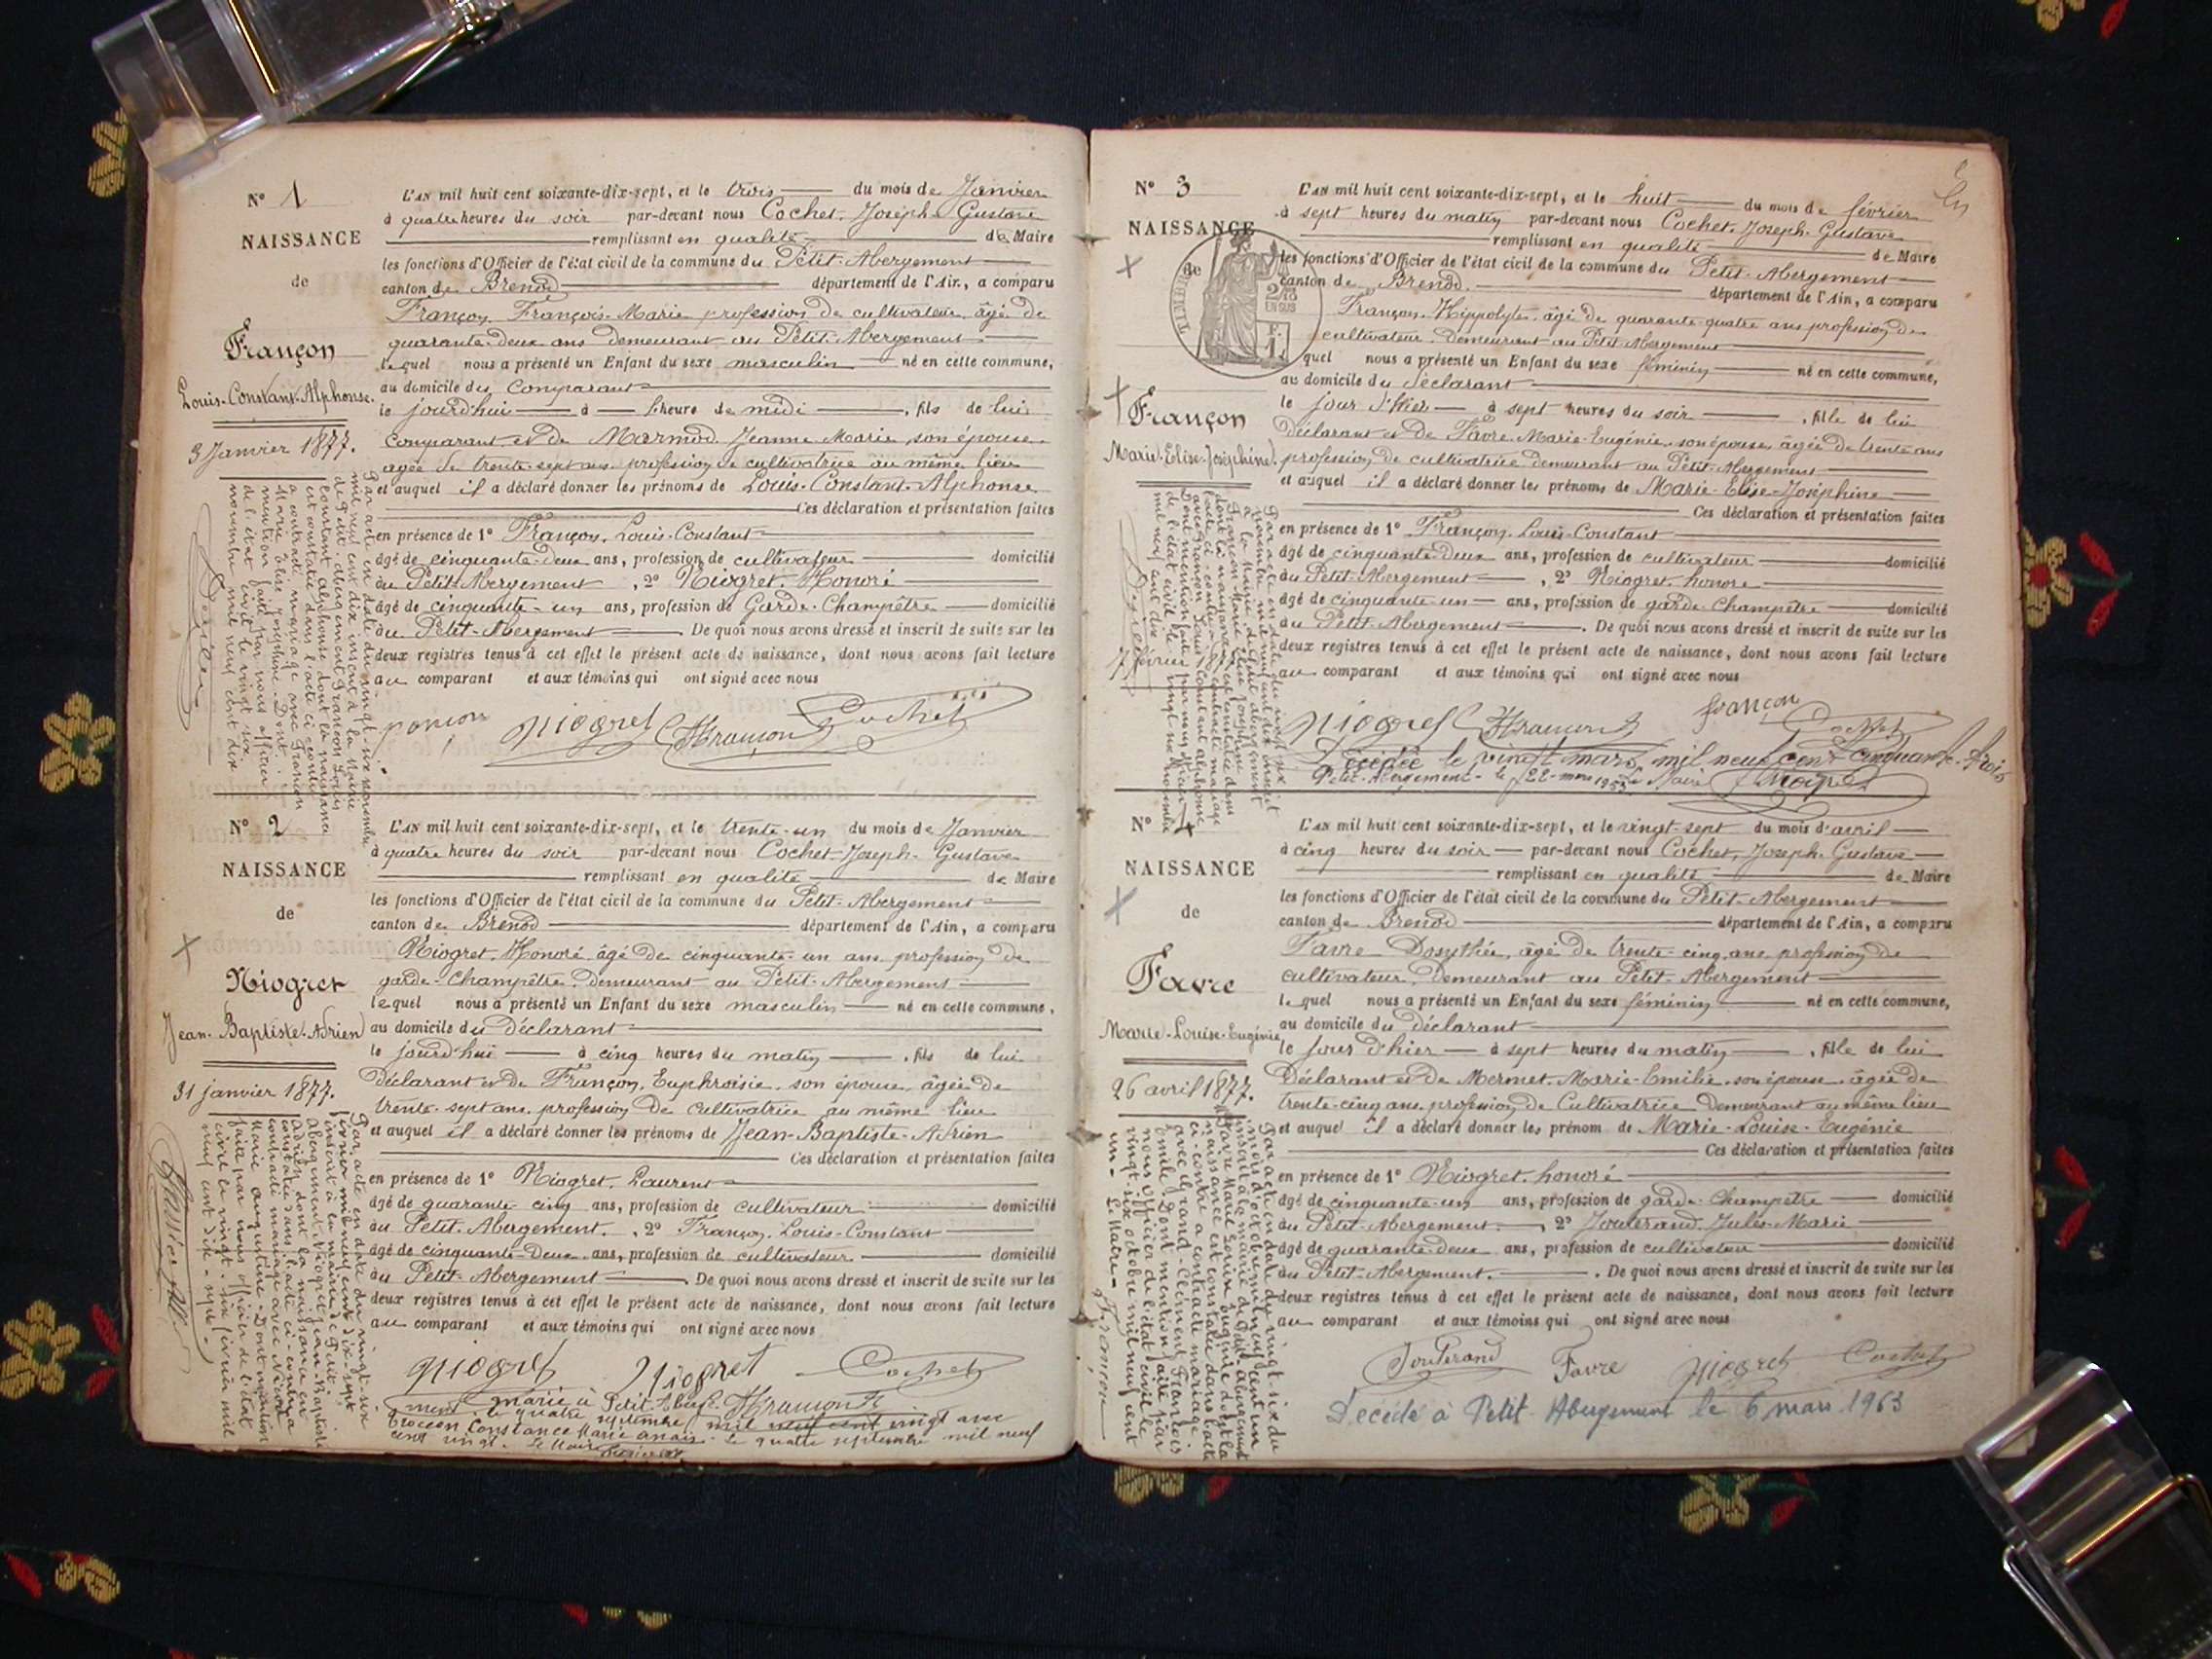 N° 1
NAISSANCE
de
Françon
Louis-Constant-Alphonse.
3 Janvier 1877.
Par acte en date du vingt-six novembre
mil neuf cent dix inscrit à la Mairie
de Petit-Abergement Françon Louis
Constant Alphonse dont la naissance
est constatée dans l'acte ci-contre
a contracté mariage avec Françon
Marie Elise Joséphine. Dont
mention faite par nous officier
de l'état civil le vingt-six
novembre mil neuf cent dix
L'AN mil huit cent soixante-dix-sept, et le trois du mois de Janvier
à quatre heures du soir par-devant nous Cochet, Joseph-Gustave
remplissant en qualité de Maire
les fonctions d'Officier de l'état civil de la commune du Petit-Abergement
canton de Brenod département de l'Ain, a comparu
Françon, François-Marie profession de cultivateur, âgé de
quarante-deux ans demeurant au Petit-Abergement
lequel nous a présenté un Enfant du sexe masculin né en cette commune,
au domicile du Comparant
le jourd'hui à l'heure de midi, fils de lui
Comparant et de Marmod Jeanne Marie, son épouse,
agée de trente-sept ans, profession de cultivatrice au même lieu
et auquel il a déclaré donner les prénoms de Louis-Constant-Alphonse
Ces déclaration et présentation faites
en présence de 1° Françon, Louis-Constant
âgé de cinquante-deux ans, profession de cultivateur domicilié
au Petit-Abergement, 2° Niogret, Honoré
âgé de cinquante-un ans, profession de Garde-Champêtre domicilié
au Petit-Abergement. De quoi nous avons dressé et inscrit de suite sur les
deux registres tenus à cet effet le présent acte de naissance, dont nous avons fait lecture
au comparant et aux témoins qui ont signé avec nous
Niogret Françon Cochet
N° 2
NAISSANCE
de
Niogret
Jean-Baptiste-Adrien
31 janvier 1877.
Par acte en date du vingt-six
février mil neuf cent dix-sept
inscrit à la mairie de Petit-
Abergement Niogret Jean-Baptiste
Adrien dont la naissance est
constatée dans l'acte ci-contre a
contracté mariage avec
Marie Augustine. Dont mention
faite par nous officier de l'état
civil le vingt-six février mil
neuf cent dix-sept
L'AN mil huit cent soixante-dix-sept, et le trente-un du mois de Janvier
à quatre heures du soir par-devant nous Cochet-Joseph-Gustave
remplissant en qualité de Maire
les fonctions d'Officier de l'état civil de la commune du Petit-Abergement
canton de Brénod département de l'Ain, a comparu
Niogret, Honoré âgé de cinquante-un ans, profession de
garde-Champêtre demeurant au Petit-Abergement
lequel nous a présenté un Enfant du sexe masculin né en cette commune,
au domicile du Déclarant
le jourd'hui à cinq heures du matin, fils de lui
Déclarant et de Françon, Euphroisie, son épouse, âgée de
trente-sept ans, profession de cultivatrice au même lieu
et auquel il a déclaré donner les prénoms de Jean-Baptiste-Adrien
Ces déclaration et présentation faites
en présence de 1° Niogret, Laurent
âgé de quarante cinq ans, profession de cultivateur domicilié
au Petit-Abergement, 2° Françon, Louis-Constant
âgé de cinquante-Deux ans, profession de cultivateur domicilié
au Petit-Abergement. De quoi nous avons dressé et inscrit de suite sur les
deux registres tenus à cet effet le présent acte de naissance, dont nous avons fait lecture
au comparant et aux témoins qui ont signé avec nous
Niogret Niogret Cochet
marié à Petit-Aberge- Françon
ment le quatre septembre mil neuf cent vingt avec
Constance Marie Anaïs. Le quatre septembre mil neuf
cent vingt. Le Maire
N° 3
NAISSANCE
de
TIMBRE
2/10 EN SUS
F. 1.
Françon
Marie-Elise-Joséphine.
7 février 1877
L'AN mil huit cent soixante-dix-sept, et le huit du mois de février
à sept heures du matin par-devant nous Cochet, Joseph-Gustave
remplissant en qualité de Maire
les fonctions d'Officier de l'état civil de la commune du Petit-Abergement
canton de Brenod. département de l'Ain, a comparu
Françon, Hippolyte, âgé de quarante-quatre ans profession de
cultivateur, demeurant au Petit-Abergement
quel nous a présenté un Enfant du sexe féminin né en cette commune,
au domicile du Déclarant
le jour d'hier à sept heures du soir, fille de lui
Déclarant et de Favre, Marie-Eugénie, son épouse, âgée de trente ans
profession de cultivatrice demeurant au Petit-Abergement
et auquel il a déclaré donner les prénoms de Marie-Elise-Joséphine
Ces déclaration et présentation faites
en présence de 1° Françon, Louis-Constant
âgé de cinquante-Deux ans, profession de cultivateur domicilié
au Petit-Abergement, 2° Niogret, honoré
âgé de cinquante-un ans, profession de garde-Champêtre domicilié
au Petit-Abergement. De quoi nous avons dressé et inscrit de suite sur les
deux registres tenus à cet effet le présent acte de naissance, dont nous avons fait lecture
au comparant et aux témoins qui ont signé avec nous
Niogret Françon françon Cochet
Décédée le vingt mars mil neuf cent cinquante-trois
Petit-Abergement - le 22 mars 1953 Le Maire
N°
NAISSANCE
de
Favre
Marie-Louise-Eugénie
26 avril 1877.
Par acte en date du vingt-six du
mois d'octobre mil neuf cent un
inscrit à la mairie du Petit-Abergement
Favre Marie Louise Eugénie dont la
naissance est constatée dans l'acte
ci-contre a contracté mariage
avec Durand-Clément François
Emile. Dont mention faite par
nous officier de l'état civil le
vingt-six octobre mil neuf cent
un - Le Maire -
Françon
L'AN mil huit cent soixante-dix-sept, et le vingt-sept du mois d'avril
à cinq heures du soir par-devant nous Cochet, Joseph-Gustave
remplissant en qualité de Maire
les fonctions d'Officier de l'état civil de la commune du Petit-Abergement
canton de Brenod département de l'Ain, a comparu
Favre Dosythée, âgé de trente-cinq ans, profession de
cultivateur, Demeurant au Petit-Abergement
le quel nous a présenté un Enfant du sexe féminin né en cette commune,
au domicile du déclarant
le jour d'hier à sept heures du matin, fille de lui
Déclarant et de Mermet, Marie-Emilie, son épouse, âgée de
trente-cinq ans, profession de Cultivatrice Demeurant au même lieu
et auquel il a déclaré donner les prénom de Marie-Louise-Eugénie
Ces déclaration et présentation faites
en présence de 1° Niogret, honoré
âgé de cinquante-un ans, profession de garde-Champêtre domicilié
au Petit-Abergement, 2° Jouterand, Jules-Marie
âgé de quarante-deux ans, profession de cultivateur domicilié
au Petit-Abergement. De quoi nous avons dressé et inscrit de suite sur les
deux registres tenus à cet effet le présent acte de naissance, dont nous avons fait lecture
au comparant et aux témoins qui ont signé avec nous
Jouterand Favre Niogret Cochet
Décédé à Petit-Abergement le 6 mars 1963